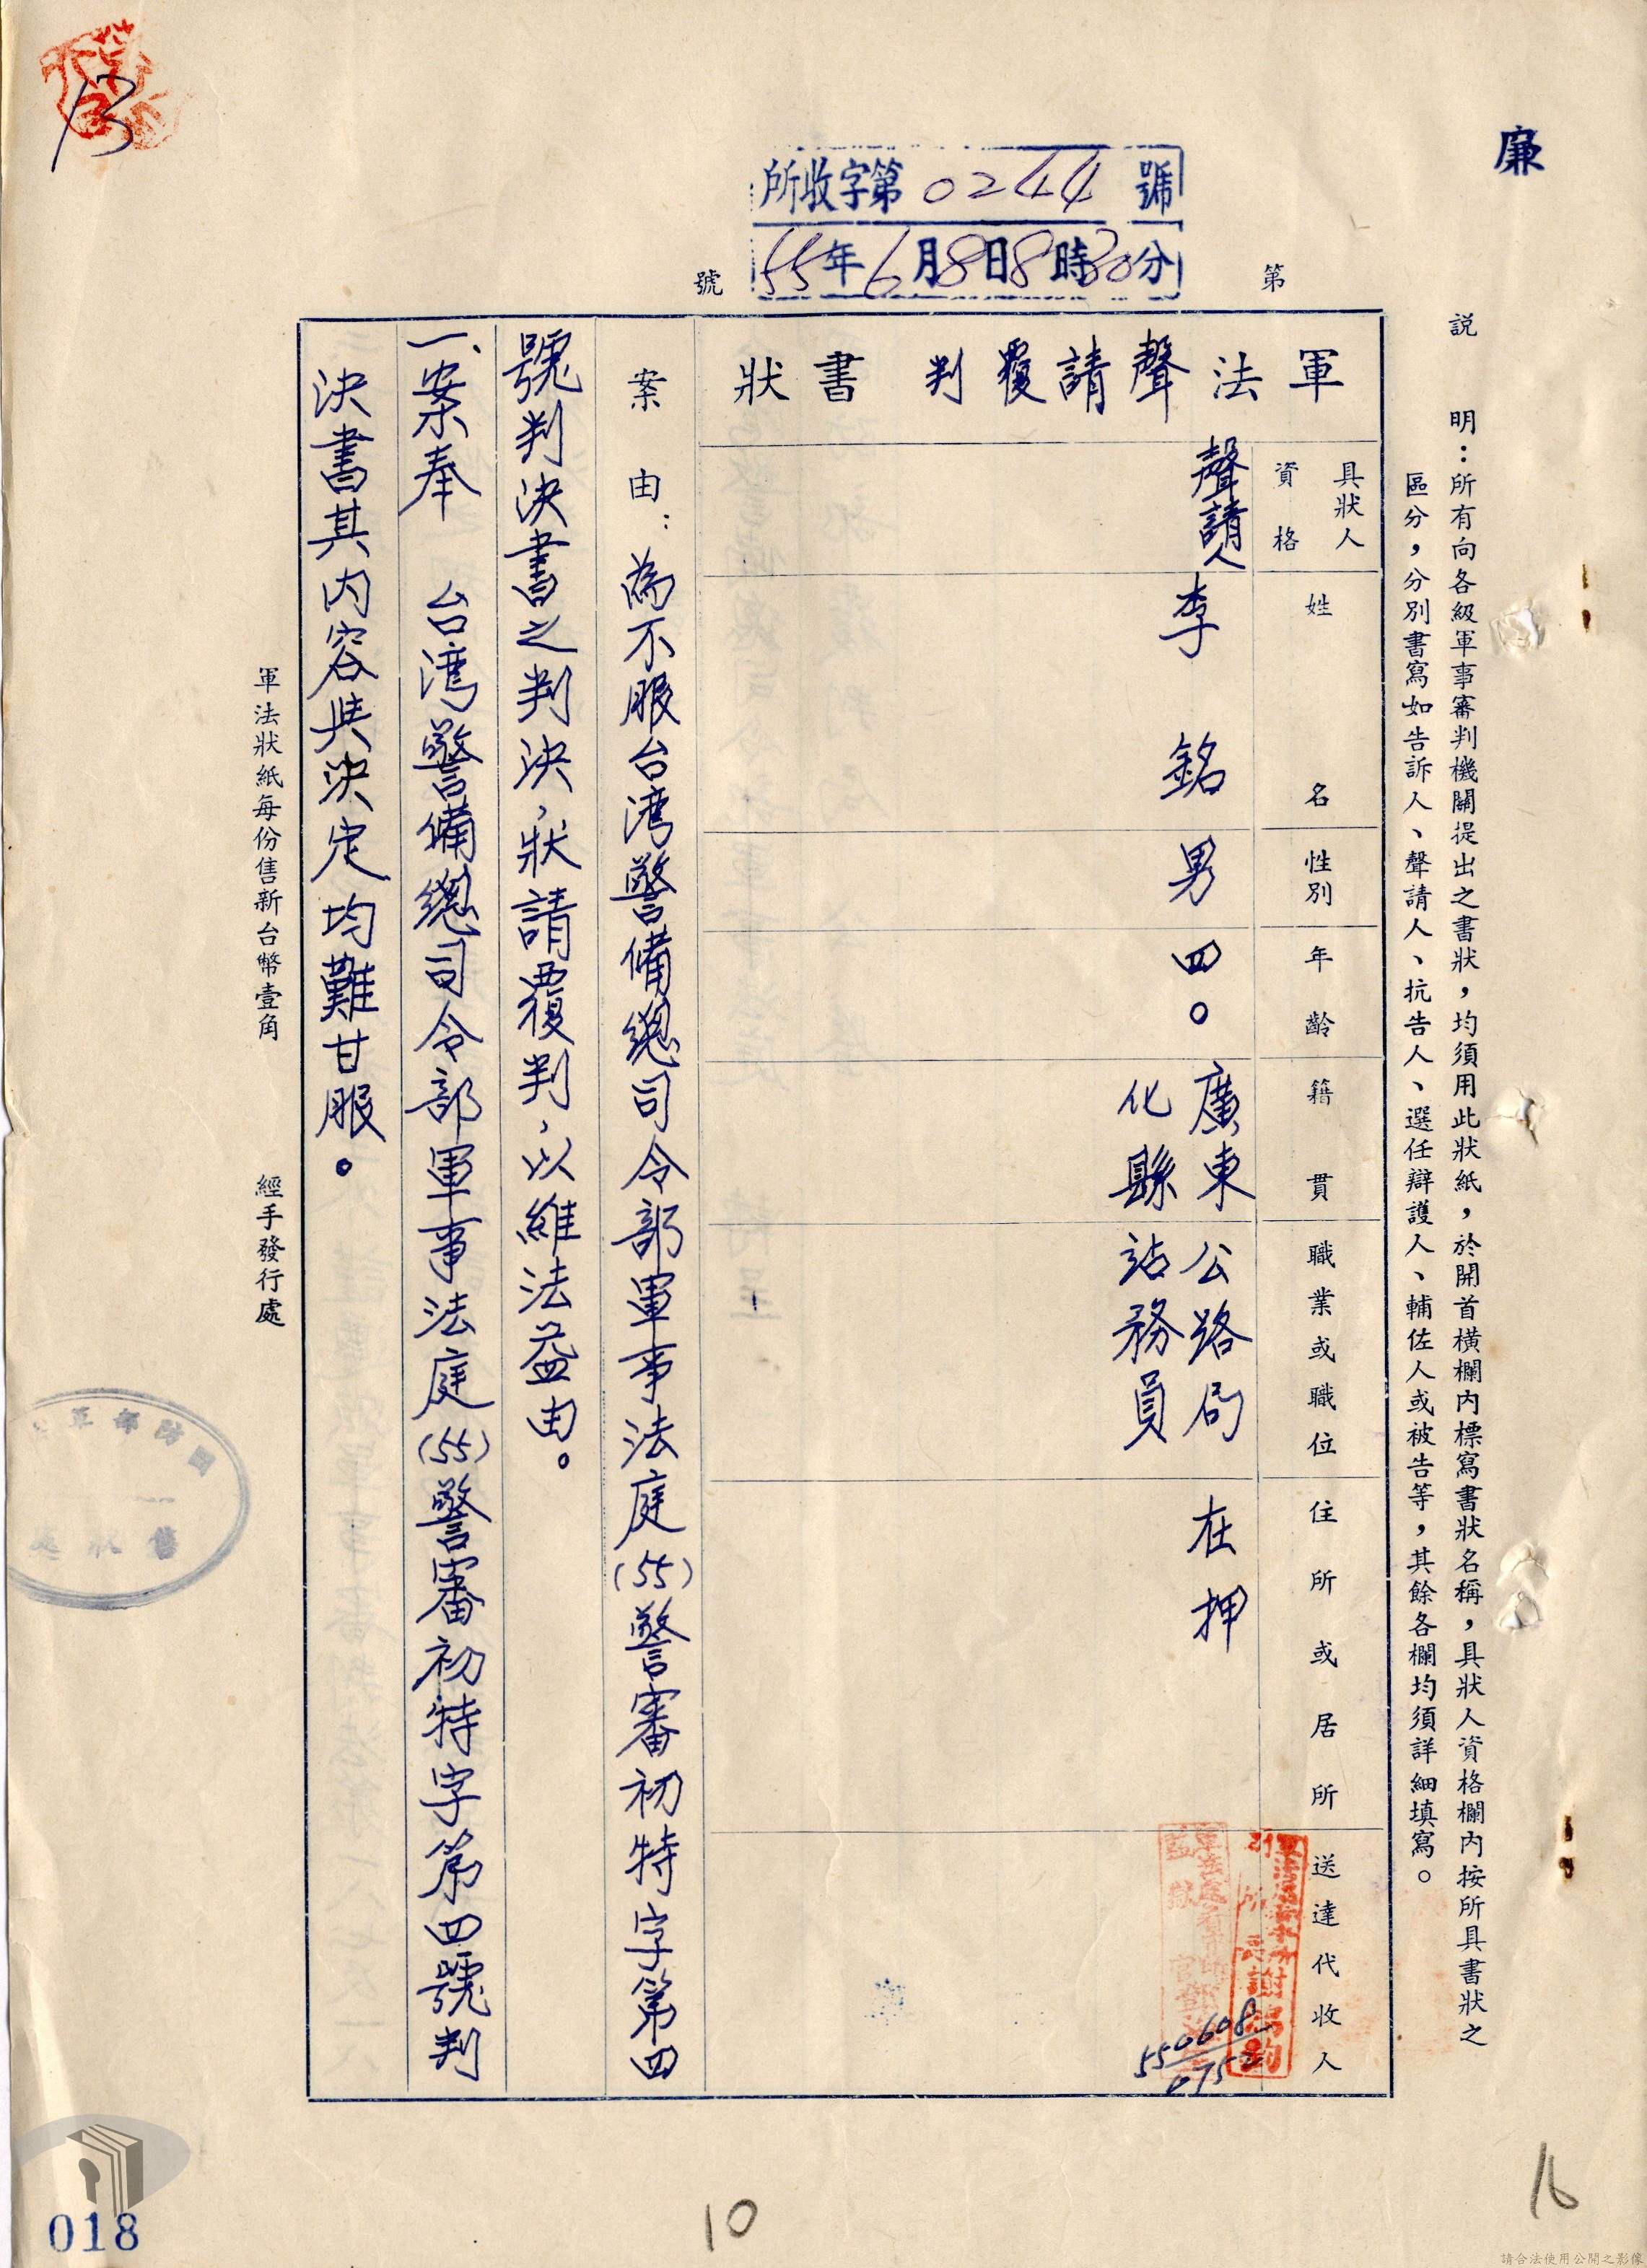 廉
13
所收字第0244號
55年6月8日8時30分
第
號
說明：所有向各級軍事審判機關提出之書狀，均須用此狀紙，於開首橫欄內標寫書狀名稱，具狀人資格欄內按所具書狀之
區分，分別書寫如告訴人、聲請人、抗告人、選任辯護人、輔佐人或被告等，其餘各欄均須詳細填寫。
軍法聲請覆判書狀
具狀人
資格
姓名
性別
年齡
籍貫
職業或職位
住所或居所
送達代收人
聲請人
李銘
男
四〇
廣東
化縣
公路局
站務員
在押
550608
075
案由：為不服台湾警備總司令部軍事法庭(55)警審初特字第四
號判決書之判決，狀請覆判，以維法益由。
一、案奉 台湾警備總司令部軍事法庭(55)警審初特字第四號判
決書其內容與決定均難甘服。
軍法狀紙每份售新台幣壹角
經手發行處
國防部軍
售狀處
018
10
16
請合法使用公開之影像